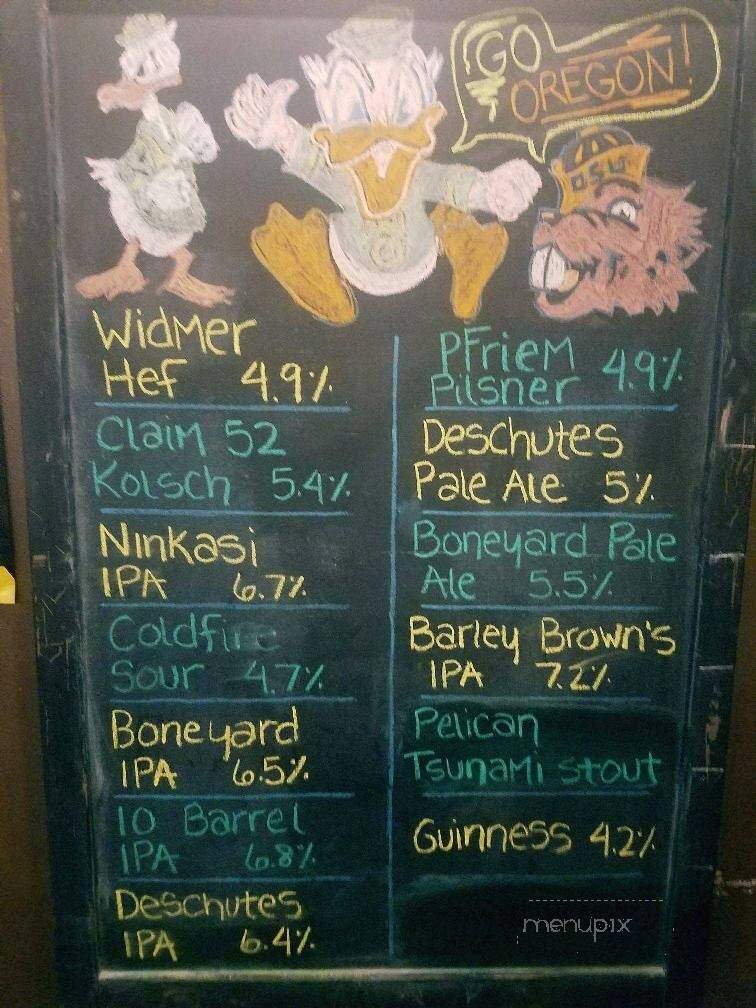 GO
OREGON!
OSU
Widmer
Hef 4.9%
Claim 52
Kolsch 5.4%
Ninkasi
IPA 6.7%
Coldfire
Sour 4.7%
Boneyard
IPA 6.5%
10 Barrel
IPA 6.8%
Deschutes
IPA 6.4%
PFriem
Pilsner 4.9%
Deschutes
Pale Ale 5%
Boneyard Pale
Ale 5.5%
Barley Brown's
IPA 7.2%
Pelican
Tsunami Stout
Guinness 4.2%
menupix